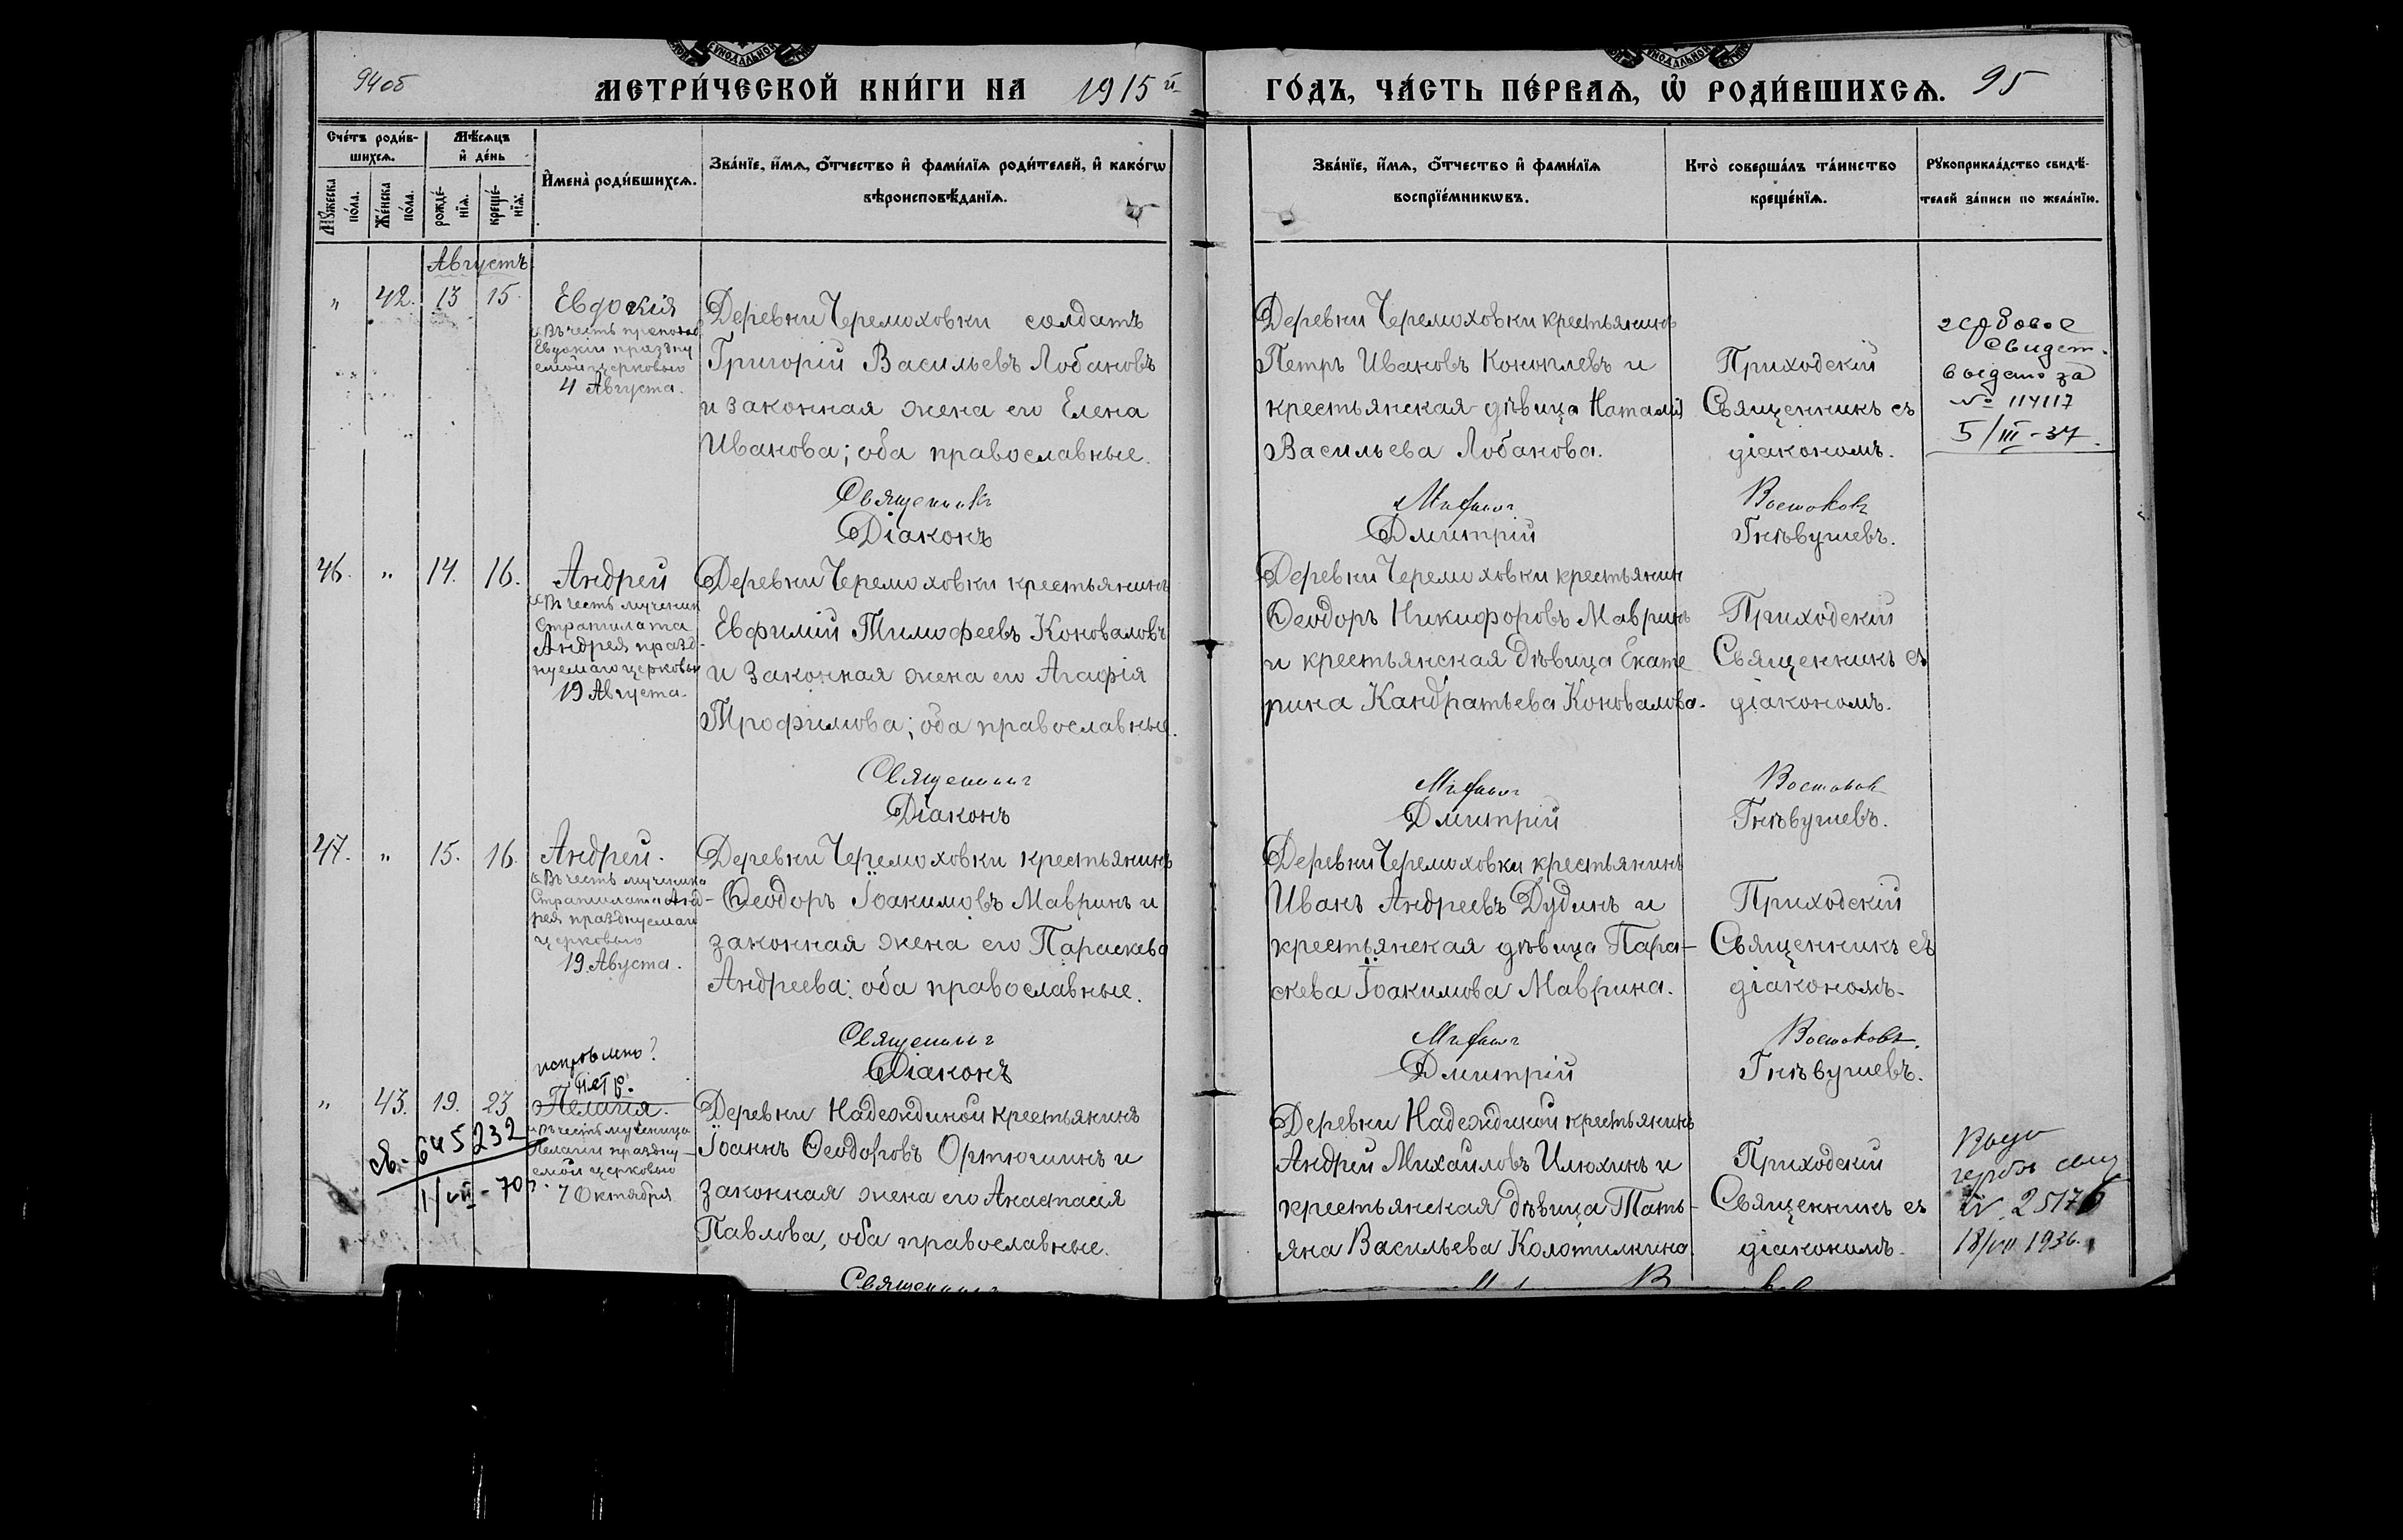 94об
МЕТРИ́ЧЕСКОЙ КНИ́ГИ НА 1915й
ГО́ДЪ, ЧА́СТЬ ПЕ́РВАѦ, Ѡ҆ РОДИ́ВШИХСѦ. 95
Сче́тъ роди́в-
шихсѧ.
Мѣ́сѧцъ
и҆ де́нь
Мꙋ́жеска
по́ла.
Же́нска
по́ла.
рожде́-
нїѧ.
креще́-
нїѧ.
И҆мена̀ роди́вшихсѧ.
Зва́нїе, и҆́мѧ, ѻ҆́тчество и҆ фами́лїѧ роди́телей, и҆ како́гѡ
вѣроисповѣ́данїѧ.
Зва́нїе, и҆́мѧ, ѻ҆́тчество и҆ фами́лїѧ
воспрїе́мникѡвъ.
Кто̀ соверша́лъ та́инство
креще́нїѧ.
Рꙋкоприкла́дство свидѣ́-
телей за́писи по жела́нїю.
Августъ
" 42. 13 15.
Евдокія
Въ честь препод
Евдокіи праздну
емой церковью
4 Августа.
Деревни Черемоховки солдатъ
Григорій Васильевъ Лобановъ
и законная жена его Елена
Иванова; оба православные.
Деревни Черемоховки крестьянинъ
Петръ Ивановъ Коноплевъ и
крестьянская дѣвица Наталія
Васильева Лобанова.
Приходскій
Священникъ съ
діакономъ.
гербовое
свидет.
выдано за
№ 114117
5/III-37.
Священникъ
Востоковъ
Діаконъ Дмитрій Гнѣвушевъ.
46. " 14. 16.
Андрей
Въ честь мученик
Стратилата
Андрея празд-
нуемаго церковью
19 Августа.
Деревни Черемоховки крестьянинъ
Евфимій Тимофеевъ Коноваловъ
и законная жена его Агафія
Трофимова; оба православные.
Деревни Черемоховки крестьянин
Ѳеодоръ Никифоровъ Мавринъ
и крестьянская дѣвица Екате
рина Кандратьева Коновалова.
Приходскій
Священникъ съ
діакономъ.
Священникъ
Востоковъ
Діаконъ Дмитрій Гнѣвушевъ.
47. " 15. 16.
Андрей.
Въ честь мученика
Стратилата Анд-
рея празднуемаго
церковью
19 Августа.
Деревни Черемоховки крестьянинъ
Ѳеодоръ Іоакимовъ Мавринъ и
законная жена его Параскева
Андреева; оба православные.
Деревни Черемоховки крестьянинъ
Иванъ Андреевъ Дудинъ и
крестьянская дѣвица Пара-
скева Іоакимова Маврина.
Приходскій
Священникъ съ
діакономъ.
Священникъ
Востоковъ.
Діаконъ Дмитрій Гнѣвушевъ.
исправлено?
Петр.
" 43. 19. 23
Пелагія.
Въ честь мученицы
Пелагіи праздну-
емой церковью
7 Октября
св.- 645232
1/VII-70г.
Деревни Надеждиной крестьянинъ
Іоаннъ Ѳеодоровъ Ортюшинъ и
законная жена его Анастасія
Павлова, оба православные.
Деревни Надеждиной крестьянинъ
Андрей Михаиловъ Илюхинъ и
крестьянская дѣвица Тать-
яна Васильева Колотилкина.
Приходскій
Священникъ съ
діакономъ.
гербов свид
18/VII 1936.
Священникъ